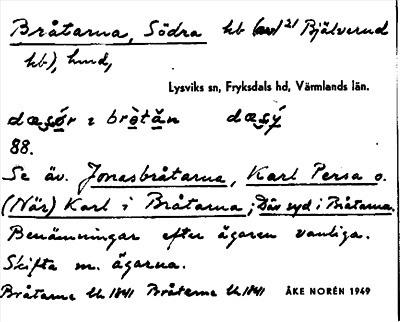 Bråtarna, Södra hb (av 1/21 Bjälverud
hb), hmd,
Lysviks sn, Fryksdals hd, Värmlands län.
88.
Se äv. Jonasbråtarna, Karl Persa o.
(När) Karl i Bråtarna; Där syd i Bråtarna.
Benämningar efter ägaren vanliga.
Skifta m. ägarna.
Bråtarne Uk 1841 Bråterne Uk 1841 ÅKE NORÉN 1949